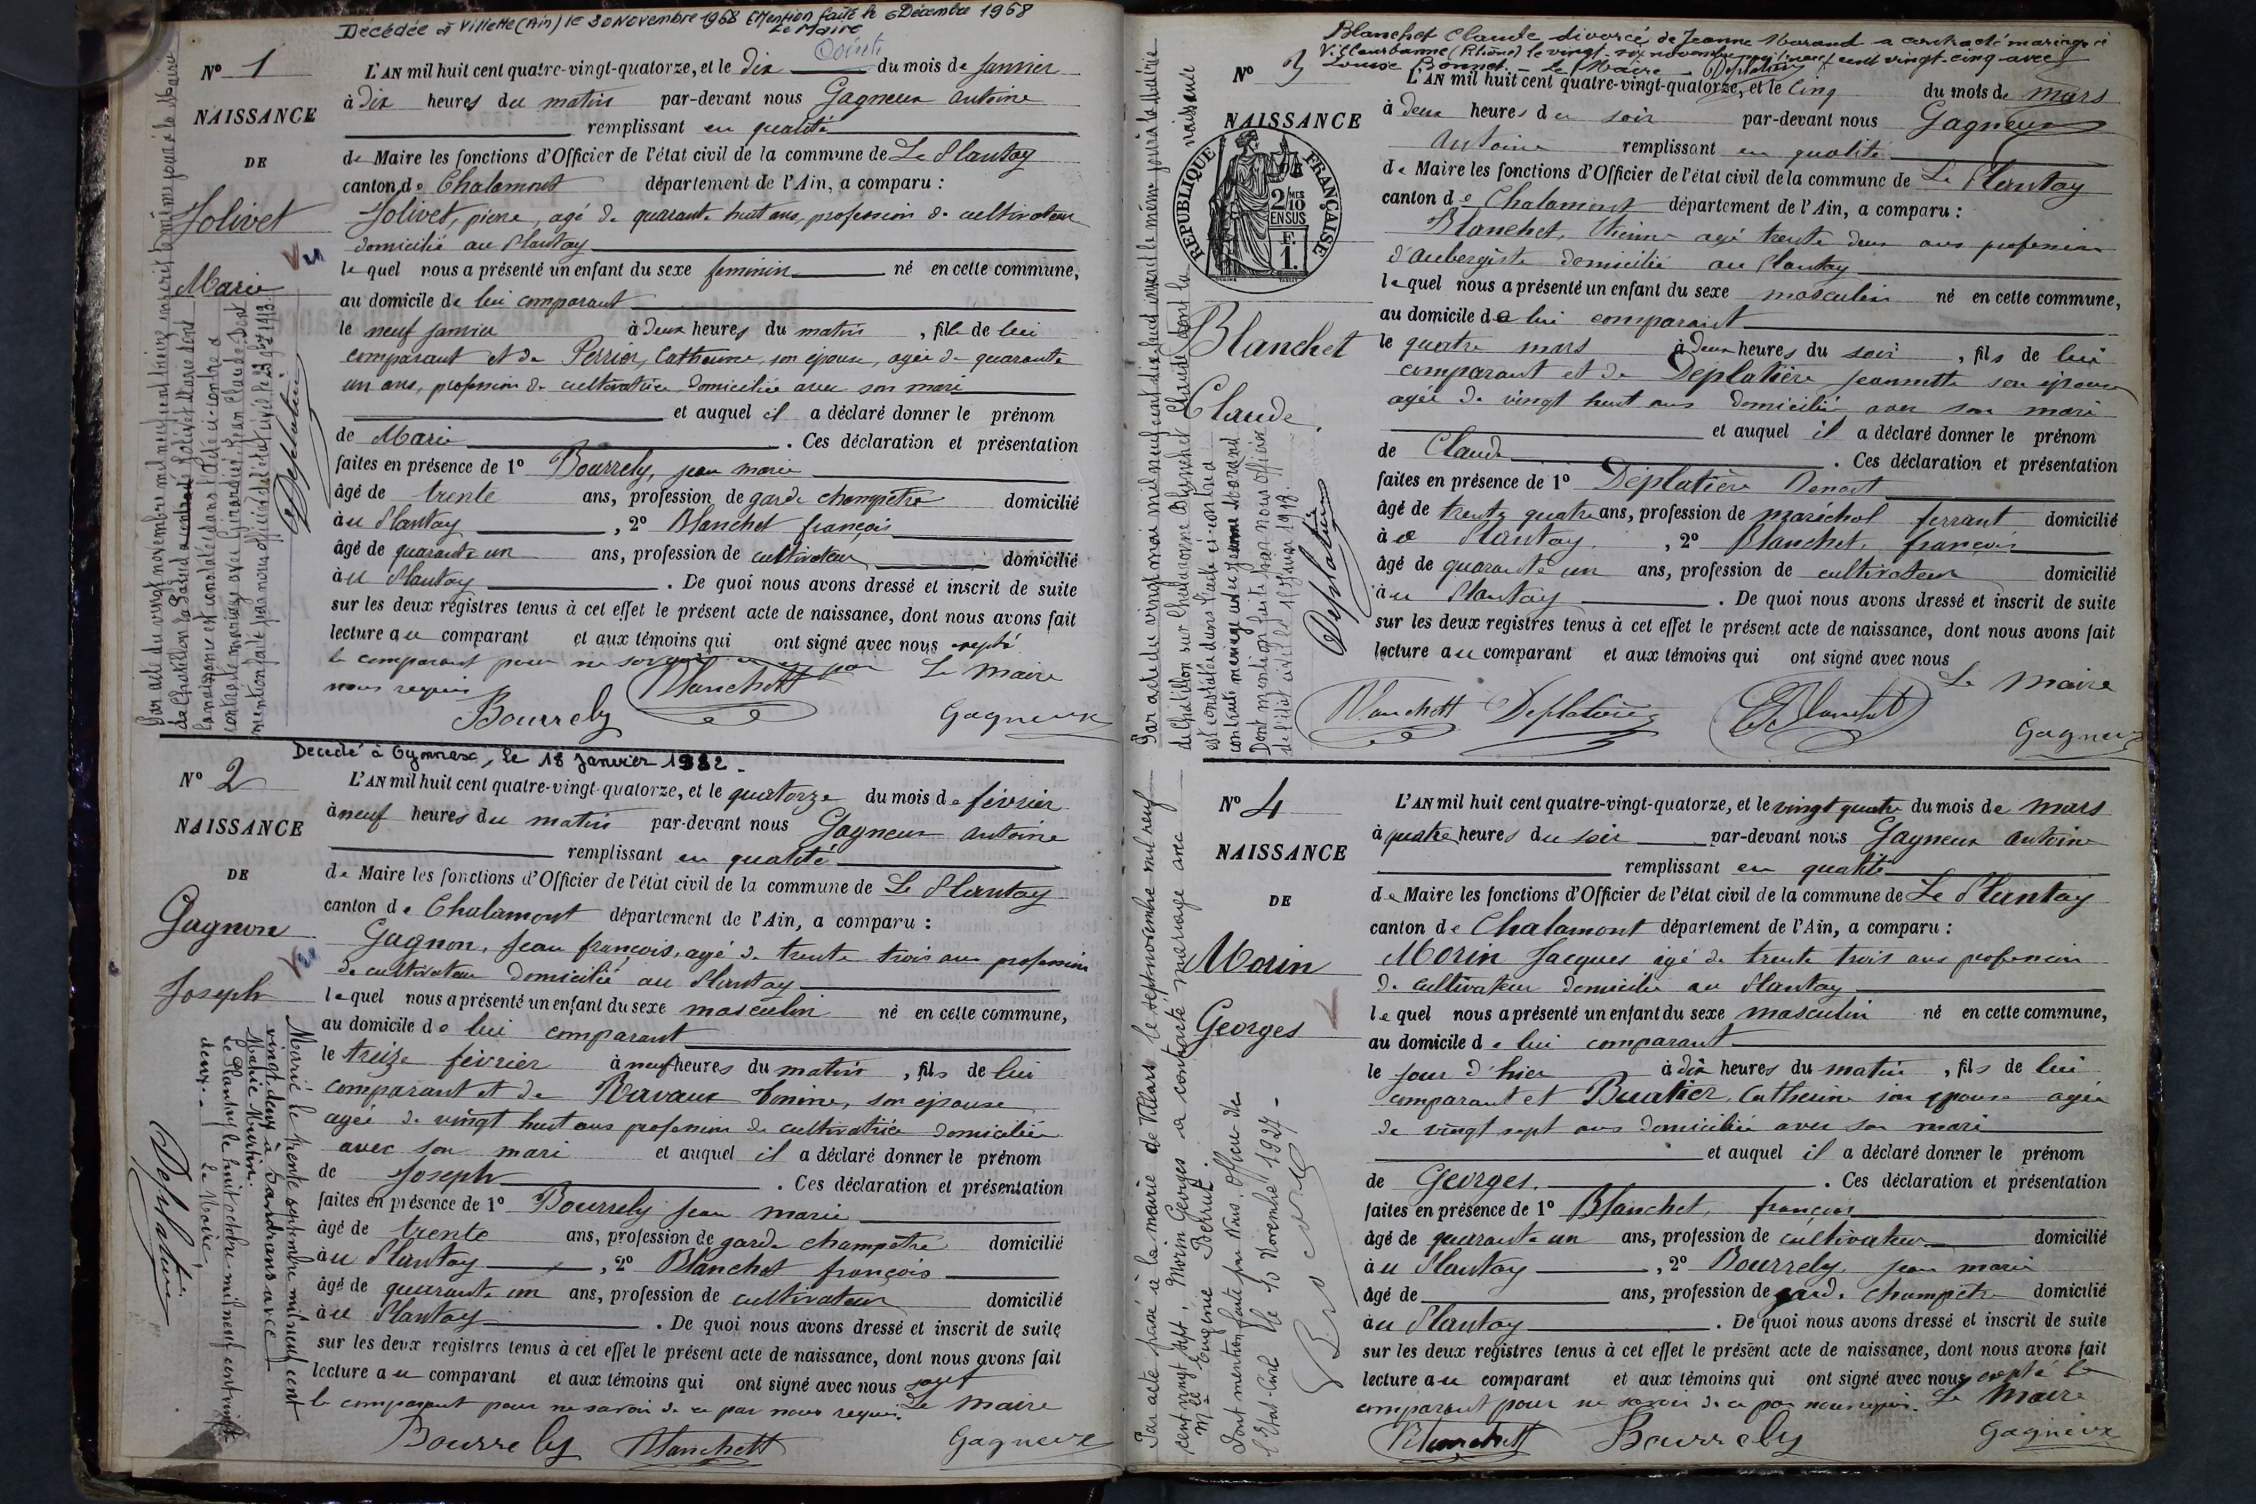 Décédée à Villette (Ain) le 30 Novembre 1968 Mention faite le 6 Décembre 1968
Le Maire
N° 1
NAISSANCE
DE
Jolivet
Marie
Vu
L'AN mil huit cent quatre-vingt-quatorze, et le dix du mois de Janvier
à dix heures du matin par-devant nous Gagneux Antoine
remplissant en qualité
de Maire les fonctions d'Officier de l'état civil de la commune de Le Plantay
canton de Chalamont département de l'Ain, a comparu :
Jolivet, pierre, agé de quarante huit ans, profession de cultivateur
domicilié au Plantay
lequel nous a présenté un enfant du sexe féminin né en cette commune,
au domicile de lui comparant
le neuf janvier à deux heures du matin, fille de lui
comparant et de Perrier, Catherine, son épouse, agée de quarante
un ans, profession de cultivatrice domiciliée avec son mari
et auquel il a déclaré donner le prénom
de Marie. Ces déclaration et présentation
faites en présence de 1° Bourrely, jean marie
âgé de trente ans, profession de garde champêtre domicilié
au Plantay, 2° Blanchet françois
âgé de quarante un ans, profession de cultivateur domicilié
au Plantay. De quoi nous avons dressé et inscrit de suite
sur les deux registres tenus à cet effet le présent acte de naissance, dont nous avons fait
lecture au comparant et aux témoins qui ont signé avec nous excepté
le comparant pour ne savoir de ce par
nous requis
Le Maire
Bourrely Blanchett Gagneux
Par acte du vingt novembre mil neuf cent treize inscrit le même jour à la Mairie
de Châtillon la Palud Jolivet Marie dont
la naissance est constatée dans l'acte ci-contre a
contracté mariage avec Girardier, Jean Claude. Dont
mention faite par nous officier de l'état civil le 23 9bre 1913.
Deplatière
Décédé à Oyonnax, le 18 Janvier 1982.
N° 2
NAISSANCE
DE
Gagnon
Joseph
Vu
L'AN mil huit cent quatre-vingt-quatorze, et le quatorze du mois de février
à neuf heures du matin par-devant nous Gagneux Antoine
remplissant en qualité
de Maire les fonctions d'Officier de l'état civil de la commune de Le Plantay
canton de Chalamont département de l'Ain, a comparu :
Gagnon, Jean françois, agé de trente trois ans profession
de cultivateur domicilié au Plantay
lequel nous a présenté un enfant du sexe masculin né en cette commune,
au domicile de lui comparant
le treize février à neuf heures du matin, fils de lui
comparant et de Ravaux Tonine, son épouse
agée de vingt huit ans profession de cultivatrice domiciliée
avec son mari et auquel il a déclaré donner le prénom
de Joseph. Ces déclaration et présentation
faites en présence de 1° Bourrely jean marie
âgé de trente ans, profession de garde champêtre domicilié
au Plantay, 2° Blanchet françois
âgé de quarante un ans, profession de cultivateur domicilié
au Plantay. De quoi nous avons dressé et inscrit de suite
sur les deux registres tenus à cet effet le présent acte de naissance, dont nous avons fait
lecture au comparant et aux témoins qui ont signé avec nous sauf
le comparant pour ne savoir de ce par nous requis. Le Maire
Bourrely Blanchett Gagneux
Marié le trente septembre mil neuf cent
vingt deux à Sandrans avec
Marie Martin.
Le Plantay le huit octobre mil neuf cent vingt
deux.
Le Maire,
Deplatière
N° 3
NAISSANCE
RÉPUBLIQUE FRANÇAISE
2/10MES
EN SUS
F.
1.
Blanchet
Claude
Blanchet Claude divorcé de Jeanne Morand a contracté mariage à
Villeurbanne (Rhône) le vingt-six novembre mil neuf cent vingt-cinq avec
Louise Bonnet. Le Maire Deplatière
L'AN mil huit cent quatre-vingt-quatorze, et le cinq du mois de mars
à deux heures du soir par-devant nous Gagneux
Antoine remplissant en qualité
de Maire les fonctions d'Officier de l'état civil de la commune de Le Plantay
canton de Chalamont département de l'Ain, a comparu :
Blanchet, Etienne agé trente deux ans profession
d'aubergiste domicilié au Plantay
lequel nous a présenté un enfant du sexe masculin né en cette commune,
au domicile de lui comparant
le quatre mars à deux heures du soir, fils de lui
comparant et de Deplatière Jeannette son épouse
agée de vingt huit ans domiciliée avec son mari
et auquel il a déclaré donner le prénom
de Claude. Ces déclaration et présentation
faites en présence de 1° Deplatière Benoit
âgé de trente quatre ans, profession de maréchal ferrant domicilié
au Plantay, 2° Blanchet, françois
âgé de quarante un ans, profession de cultivateur domicilié
au Plantay. De quoi nous avons dressé et inscrit de suite
sur les deux registres tenus à cet effet le présent acte de naissance, dont nous avons fait
lecture au comparant et aux témoins qui ont signé avec nous
Le Maire
Blanchett Deplatière E Blanchet Gagneux
Par acte du vingt mai mil neuf cent dix huit inscrit le même jour à la Mairie
de Châtillon sur Chalaronne Blanchet Claude dont la naissance
est constatée dans l'acte ci-contre a
contracté mariage avec Jeanne Morand
Dont mention faite par nous officier
de l'état civil le
Deplatière
N° 4
NAISSANCE
DE
Morin
Georges
L'AN mil huit cent quatre-vingt-quatorze, et le vingt quatre du mois de mars
à quatre heures du soir par-devant nous Gagneux Antoine
remplissant en qualité
de Maire les fonctions d'Officier de l'état civil de la commune de Le Plantay
canton de Chalamont département de l'Ain, a comparu :
Morin Jacques agé de trente trois ans profession
de cultivateur domicilié au Plantay
lequel nous a présenté un enfant du sexe masculin né en cette commune,
au domicile de lui comparant
le jour d'hier à dix heures du matin, fils de lui
comparant et Buatier, Catherine son épouse agée
de vingt sept ans domiciliée avec son mari
et auquel il a déclaré donner le prénom
de Georges. Ces déclaration et présentation
faites en présence de 1° Blanchet, françois
âgé de quarante un ans, profession de cultivateur domicilié
au Plantay, 2° Bourrely jean marie
âgé de ans, profession de garde champêtre domicilié
au Plantay. De quoi nous avons dressé et inscrit de suite
sur les deux registres tenus à cet effet le présent acte de naissance, dont nous avons fait
lecture au comparant et aux témoins qui ont signé avec nous excepté le
comparant pour ne savoir de ce par nous requis. Le Maire
Blanchett Bourrely Gagneux
Par acte passé à la mairie de Villars le sept novembre mil neuf
cent vingt sept, Morin Georges a contracté mariage avec
Mlle Eugénie Perrut.
Dont mention faite par Nous, Officier de
l'Etat-Civil le 10 Novembre 1927.